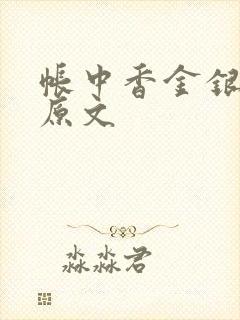 帐中香金银
原文
淼淼君